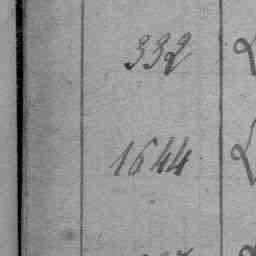 332
1644